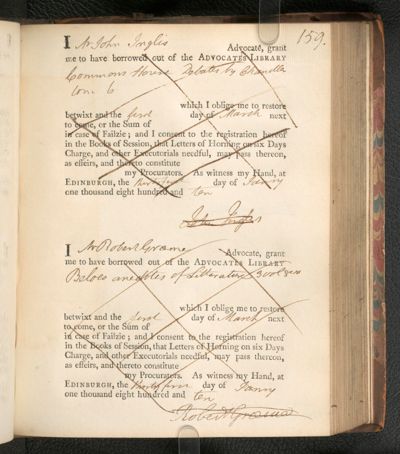 159.
I Mr John Inglis Advocate, grant
me to have borrowed out of the ADVOCATES LIBRARY
Commons House Debates by Chandler
tom 6
which I oblige me to restore
betwixt and the first day of March next
to come, or the Sum of
in case of Failzie; and I consent to the registration hereof
in the Books of Session, that Letters of Horning on six Days
Charge, and other Executorials needful, may pass thereon,
as effeirs, and thereto constitute
my Procurators. As witness my Hand, at
EDINBURGH, the day of Janry
one thousand eight hundred and ten
John Inglis
I Mr Robert Graeme Advocate, grant
me to have borrowed out of the ADVOCATES LIBRARY
Beloes anecdotes of Litterature 3 vol
which I oblige me to restore
betwixt and the first day of March next
to come, or the Sum of
in case of Failzie; and I consent to the registration hereof
in the Books of Session, that Letters of Horning on six Days
Charge, and other Executorials needful, may pass thereon,
as effeirs, and thereto constitute
my Procurators. As witness my Hand, at
EDINBURGH, the day of Janry
one thousand eight hundred and ten
Robert Graeme